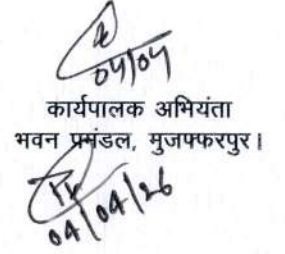 04/04
कार्यपालक अभियंता
भवन प्रमंडल, मुजफ्फरपुर।
04/04/26